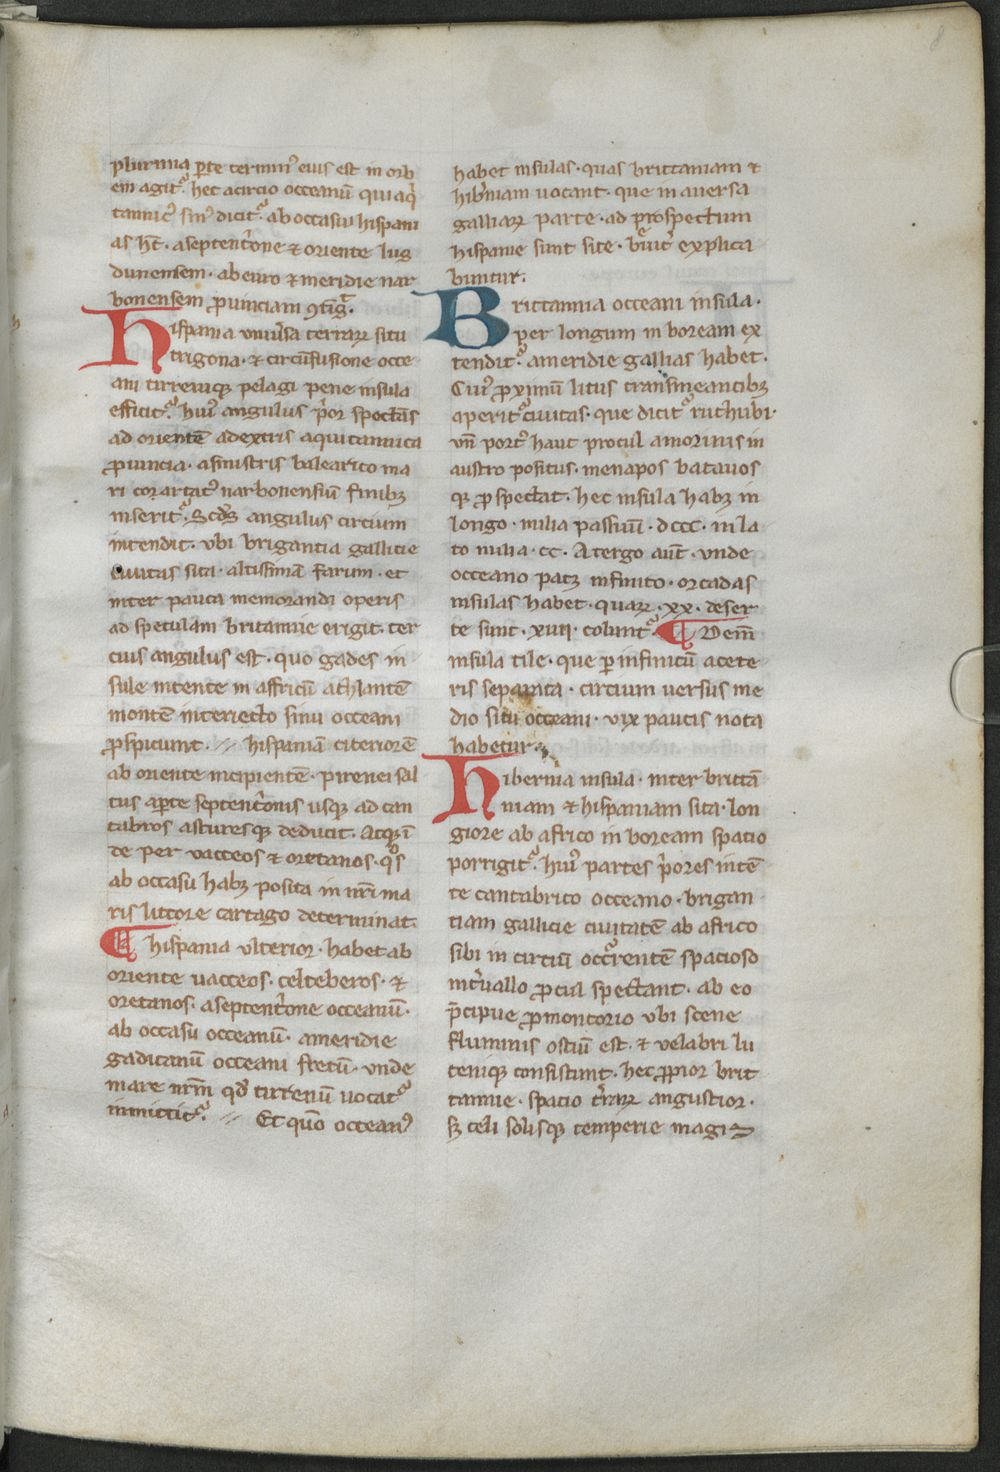 plurima parte termin᾽ eius est in orb
em agit᷑. hec a circio occeanū qui aq̇
tanic᾽ sin᾽ dicit᷑. ab occasu hispani
as ht̄. a septent̓one ⁊ oriente lug
dunensem. ab euro ⁊ meridie nar
bonensem ꝓuinciam ꝯtīg᷑.
Hispania uniu̓sa terraꝝ situ
trigona. ⁊ circūfusione occe
ani tirreniqꝫ pelagi pene insula
efficit᷑. hui᾽ angulus p̓or spectās
ad orientē a dextris aquitannica
ꝓuincia. a sinistris balearico ma
ri coartat᾽ narbonensiū finibꝫ
inserit᷑. Scd̄s angulus circium
intendit. vbi brigantia gallicie
ciuitas sita. altissimā farum. et
inter pauca memorandi operis
ad speculam britannie erigit. ter
cius angulus est. quo gades in
sule intente in affricū athlantē
montē interiecto sinu occeani
ꝓspiciunt. // hispaniā citeriorē
ab oriente incipientē. pirenei sal
tus a ꝑte septent̓onis usqꝫ ad can
tabros asturesqꝫ deducit. Atqꝫ ī
de per vacceos ⁊ oretanos. q̊s
ab occasu habꝫ posita in nr̄i ma
ris littore cartago determinat.
¶ hispania vlterior. habet ab
oriente uacceos. celteberos. ⁊
oretanos. a septent̓one occeanū.
ab occasu occeanū. a meridie
gaditanū occeani fretū. vnde
mare nrm̄ qd̄ tirrenū uocat᷑
inmittit᷑. // Et qm̄o occean᾽
habet insulas. quas brittaniam ⁊
hib̓niam uocant. que in auersa
galliaꝝ parte. ad prospectum
hispanie sunt site. b̓uit̓ explica
buntur.
Brittannia occeani insula.
per longum in boream ex
tendit᷑. a meridie gallias habet.
Cui᾽ ꝓximū litus transmeantibꝫ
aperit᷑ ciuitas. que dicit᷑ ruthubi.
vn̄ port᾽ haut procul a morinis in
austro positus. menapos batauos
qꝫ ꝓspectat. hec insula habꝫ in
longo. milia passuū. dccc. in la
to milia. cc. A tergo aut̄. vnde
occeano patꝫ infinito. orcadas
insulas habet. quaꝝ. xx. deser
te sunt. xiii. colunt᷑. ¶ Dein̄
insula tile. que ꝑ infinitū a cete
ris separata. circium uersus me
dio situ occeani. vix paucis nota
habetur.
Hibernia insula. inter brittā
niam ⁊ hispaniam sita. lon
giore ab africo in boream spacio
porrigit᷑. hui᾽ partes p̓ores intē
te cantabrico occeano. brigan
tiam gallicie ciuitatē ab africo
sibi in circiū occr̓rentē spacioso
int̓uallo ꝓcul spectant. ab eo
p̄cipue ꝓmontorio vbi scene
fluminis ostiū est. ⁊ velabri lu
ceniqꝫ consistunt. hec ꝓpior brit
tannie. spacio t̓raꝝ angustior.
sꝫ celi solisqꝫ temperie magis